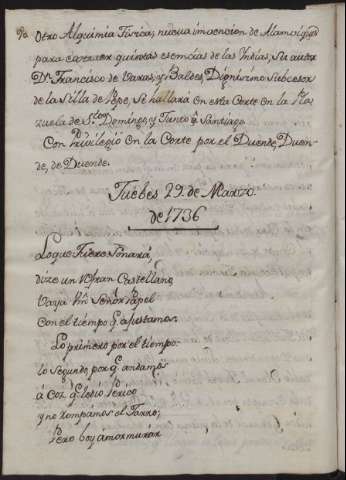 Otro Alquimia Fisica, nueva imbencion de Alamoiques
para extraer quintas esencias de las Yndias, Su autor
Dn. Francisco de Varas, y Baldes, Dignisimo subcesor
de la Silla de Pepe, Se hallará en esta Corte en la Pla-
zuela de Sto. Domingo, y Junto á Santiago.
Con Privilegio en la Corte por el Duende, Duen-
de, de Duende.
Juebes 29 de Marzo
de 1736
Loque Fuere Sonará,
dize un refran Castellano,
Vaya Sr. Señor Papel
Con el tiempo q. ajustamos.
Lo primero por el tiempo
lo segundo, por q. andamos
á Coz q.
y no rompamos el Jarro;
Pero boy á murmurar